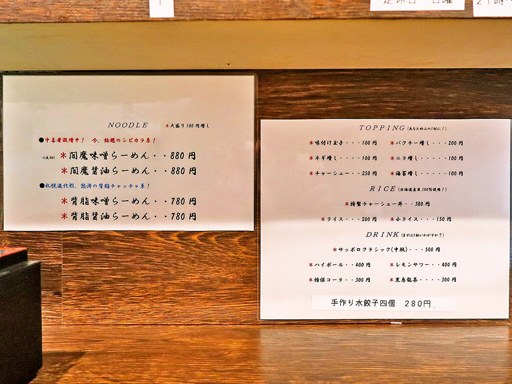 NOODLE ＊大盛り100円増し
＊閻魔味噌らーめん・・880円
＊閻魔醤油らーめん・・880円
＊背脂味噌らーめん・・780円
＊背脂醤油らーめん・・780円
TOPPING
＊味付け玉子・・・100円 ＊パクチー増し・・・200円
＊ネギ増し・・・100円 ＊ニラ増し・・・100円
＊チャーシュー・・・250円 ＊海苔増し・・・100円
RICE
＊特製チャーシュー丼・・380円
＊ライス・・・200円 ＊小ライス・・・150円
DRINK
＊サッポロクラシック(中瓶)・・・500円
＊ハイボール・・400円 ＊レモンサワー・・400円
＊黒烏龍茶・・・・300円
手作り水餃子四個 280円